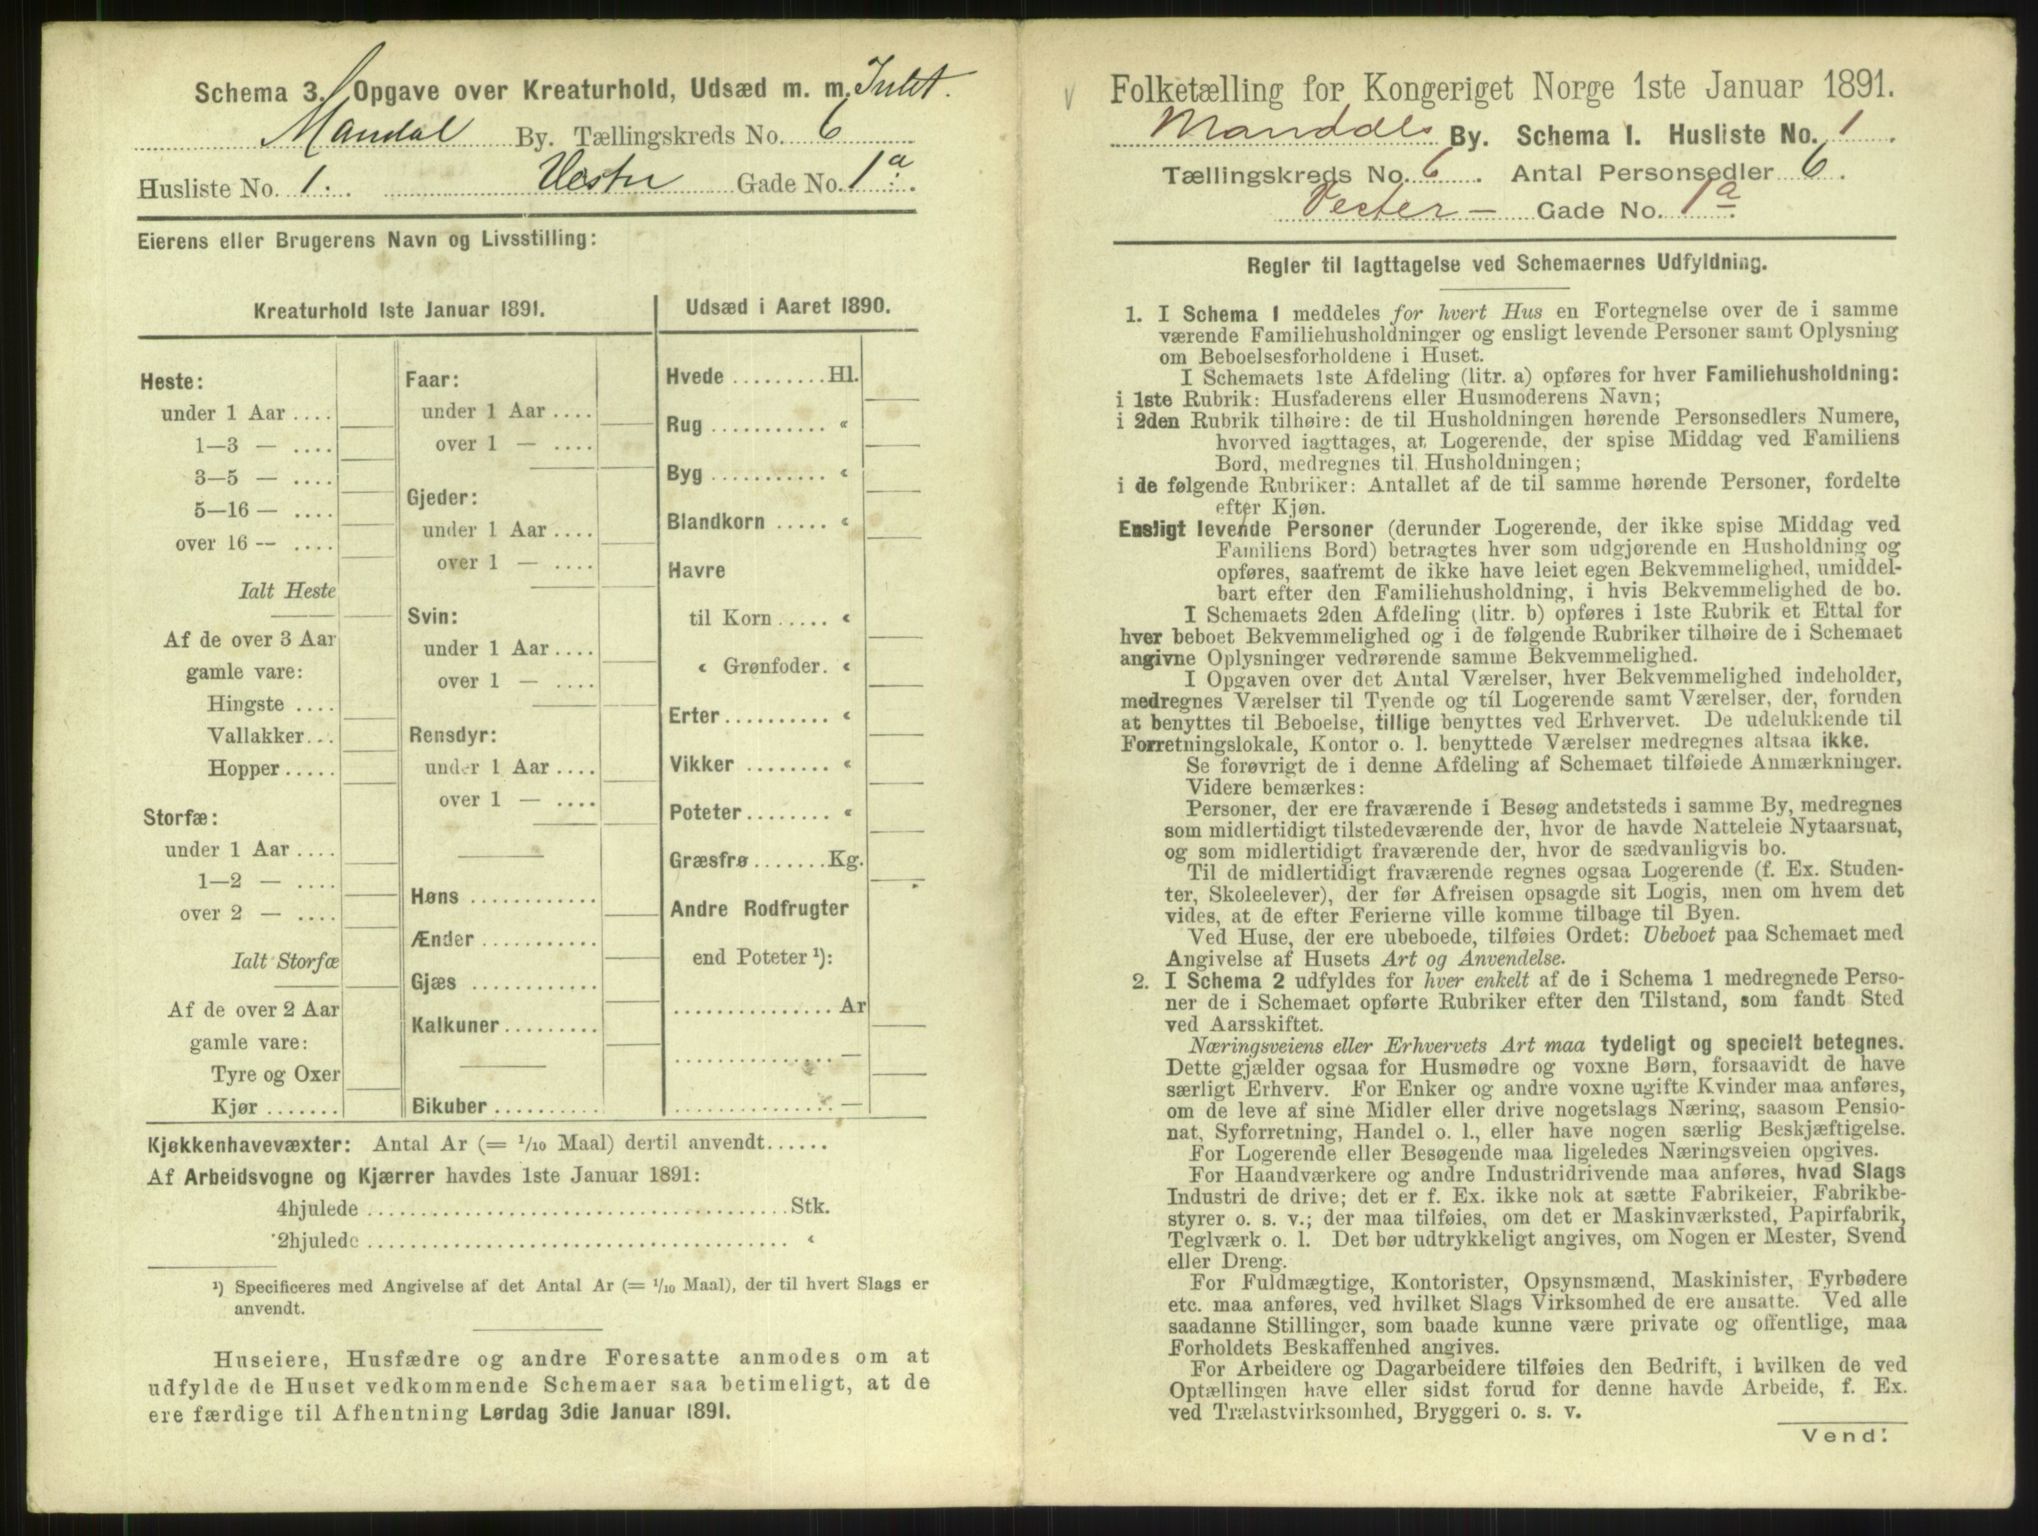 Schema 3. Opgave over Kreaturhold, Udsæd m. m. Intet.
Mandal By. Tællingskreds No. 6
Husliste No. 1. Vester Gade No. 1a.
Eierens eller Brugerens Navn og Livsstilling:
Kreaturhold 1ste Januar 1891.
Heste:
under 1 Aar ....
1—3 — ....
3—5 — ....
5—16 — ....
over 16 — ....
Ialt Heste
Af de over 3 Aar
gamle vare:
Hingste ....
Vallakker...
Hopper.....
Storfæ:
under 1 Aar ....
1—2 — ....
over 2 — ....
Ialt Storfæ
Af de over 2 Aar
gamle vare:
Tyre og Oxer
Kjør .......
Faar:
under 1 Aar ....
over 1 — ....
Gjeder:
under 1 Aar ....
over 1 — ....
Svin:
under 1 Aar ....
over 1 — ....
Rensdyr:
under 1 Aar ....
over 1 — ....
Høns ............
Ænder ...........
Gjæs ............
Kalkuner.........
Bikuber ..........
Udsæd i Aaret 1890.
Hvede .........Hl.
Rug ........... «
Byg ........... «
Blandkorn ..... «
Havre
til Korn ..... «
« Grønfoder. «
Erter.......... «
Vikker ........ «
Poteter........ «
Græsfrø .......Kg.
Andre Rodfrugter
end Poteter ¹):
...............Ar
...............—
...............—
Kjøkkenhavevæxter: Antal Ar (= 1/10 Maal) dertil anvendt......
Af Arbeidsvogne og Kjærrer havdes 1ste Januar 1891:
4hjulede .......................................Stk.
2hjulede ....................................... «
¹) Specificeres med Angivelse af det Antal Ar (= 1/10 Maal), der til hvert Slags er
anvendt.
Huseiere, Husfædre og andre Foresatte anmodes om at
udfylde de Huset vedkommende Schemaer saa betimeligt, at de
ere færdige til Afhentning Lørdag 3die Januar 1891.
Folketælling for Kongeriget Norge 1ste Januar 1891.
Mandals By. Schema 1. Husliste No. 1.
Tællingskreds No. 6. Antal Personsedler 6.
Vester— Gade No. 1a.
Regler til Iagttagelse ved Schemaernes Udfyldning.
1. I Schema 1 meddeles for hvert Hus en Fortegnelse over de i samme
værende Familiehusholdninger og ensligt levende Personer samt Oplysning
om Beboelsesforholdene i Huset.
I Schemaets 1ste Afdeling (litr. a) opføres for hver Familiehusholdning:
i 1ste Rubrik: Husfaderens eller Husmoderens Navn;
i 2den Rubrik tilhøire: de til Husholdningen hørende Personsedlers Numere,
hvorved iagttages, at Logerende, der spise Middag ved Familiens
Bord, medregnes til Husholdningen;
i de følgende Rubriker: Antallet af de til samme hørende Personer, fordelte
efter Kjøn.
Ensligt levende Personer (derunder Logerende, der ikke spise Middag ved
Familiens Bord) betragtes hver som udgjørende en Husholdning og
opføres, saafremt de ikke have leiet egen Bekvemmelighed, umiddel-
bart efter den Familiehusholdning, i hvis Bekvemmelighed de bo.
I Schemaets 2den Afdeling (litr. b) opføres i 1ste Rubrik et Ettal for
hver beboet Bekvemmelighed og i de følgende Rubriker tilhøire de i Schemaet
angivne Oplysninger vedrørende samme Bekvemmelighed.
I Opgaven over det Antal Værelser, hver Bekvemmelighed indeholder,
medregnes Værelser til Tyende og til Logerende samt Værelser, der, foruden
at benyttes til Beboelse, tillige benyttes ved Erhvervet. De udelukkende til
Forretningslokale, Kontor o. l. benyttede Værelser medregnes altsaa ikke.
Se forøvrigt de i denne Afdeling af Schemaet tilføiede Anmærkninger.
Videre bemærkes:
Personer, der ere fraværende i Besøg andetsteds i samme By, medregnes
som midlertidigt tilstedeværende der, hvor de havde Natteleie Nytaarsnat,
og som midlertidigt fraværende der, hvor de sædvanligvis bo.
Til de midlertidigt fraværende regnes ogsaa Logerende (f. Ex. Studen-
ter, Skoleelever), der før Afreisen opsagde sit Logis, men om hvem det
vides, at de efter Ferierne ville komme tilbage til Byen.
Ved Huse, der ere ubeboede, tilføies Ordet: Ubeboet paa Schemaet med
Angivelse af Husets Art og Anvendelse.
2. I Schema 2 udfyldes for hver enkelt af de i Schema 1 medregnede Perso-
ner de i Schemaet opførte Rubriker efter den Tilstand, som fandt Sted
ved Aarsskiftet.
Næringsveiens eller Erhvervets Art maa tydeligt og specielt betegnes.
Dette gjælder ogsaa for Husmødre og voxne Børn, forsaavidt de have
særligt Erhverv. For Enker og andre voxne ugifte Kvinder maa anføres,
om de leve af sine Midler eller drive nogetslags Næring, saasom Pensio-
nat, Syforretning, Handel o. l., eller have nogen særlig Beskjæftigelse.
For Logerende eller Besøgende maa ligeledes Næringsveien opgives.
For Haandværkere og andre Industridrivende maa anføres, hvad Slags
Industri de drive; det er f. Ex. ikke nok at sætte Fabrikeier, Fabrikbe-
styrer o. s. v.; der maa tilføies, om det er Maskinværksted, Papirfabrik,
Teglværk o. l. Det bør udtrykkeligt angives, om Nogen er Mester, Svend
eller Dreng.
For Fuldmægtige, Kontorister, Opsynsmænd, Maskinister, Fyrbødere
etc. maa anføres, ved hvilket Slags Virksomhed de ere ansatte. Ved alle
saadanne Stillinger, som baade kunne være private og offentlige, maa
Forholdets Beskaffenhed angives.
For Arbeidere og Dagarbeidere tilføies den Bedrift, i hvilken de ved
Optællingen have eller sidst forud for denne havde Arbeide, f. Ex.
ved Trælastvirksomhed, Bryggeri o. s. v.
Vend!